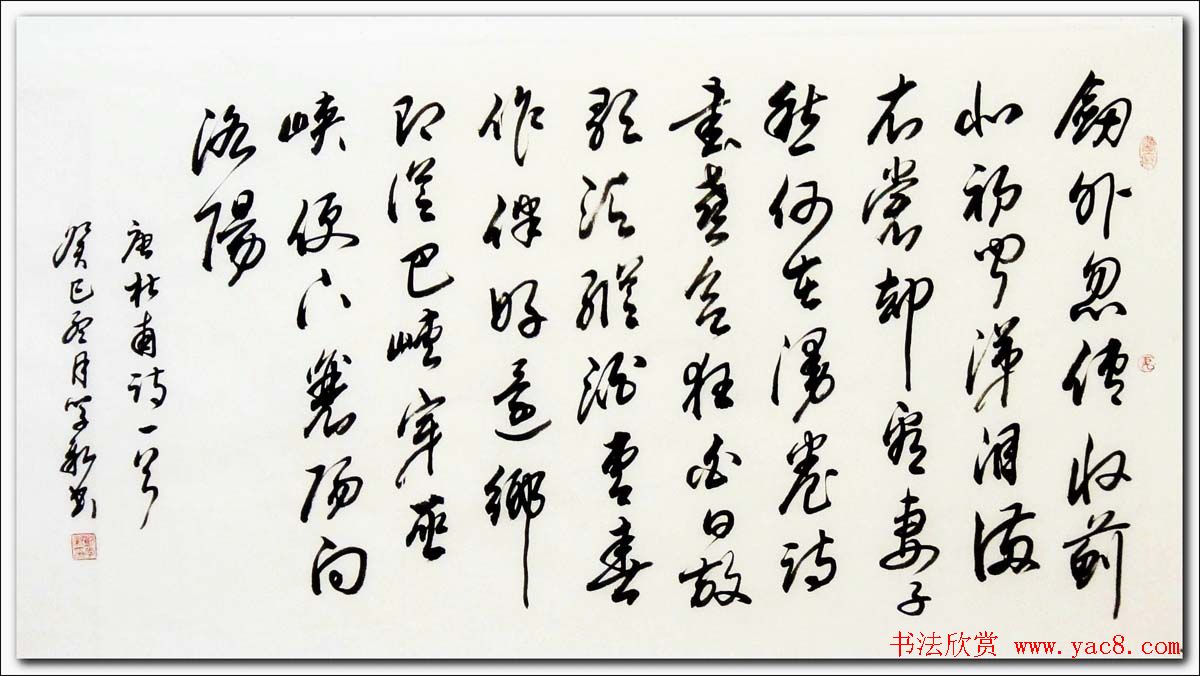 劔外忽傳收薊
北初聞涕淚滿
衣裳却看妻子
愁何在漫卷詩
書喜欲狂白日放
歌須縱酒青春
作伴好還鄉
即從巴峽穿巫
峽便下襄陽向
洛陽
唐杜甫詩一首
癸巳月学新书
书法欣赏 www.yac8.com